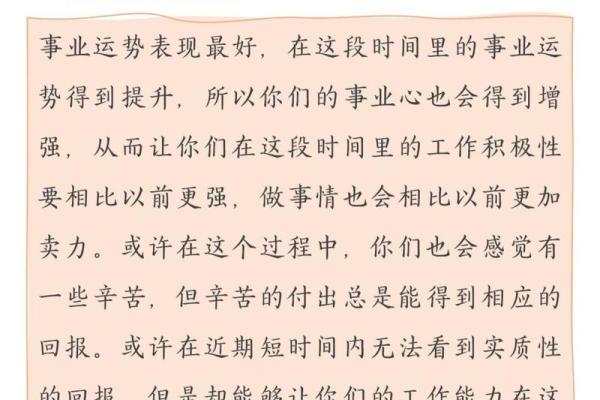 事业运势表现最好，在这段时间里的事业运
势得到提升，所以你们的事业心也会得到增
强，从而让你们在这段时间里的工作积极性
要相比以前更强，做事情也会相比以前更加
卖力。或许在这个过程中，你们也会感觉有
一些辛苦，但辛苦的付出总是能得到相应的
回报。或许在近期短时间内无法看到实质性
的回报，但是却能够让你们的工作能力在这